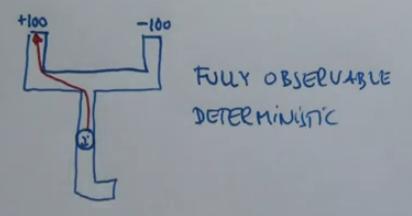 +100
-100
FULLY OBSERVABLE
DETERMINISTIC